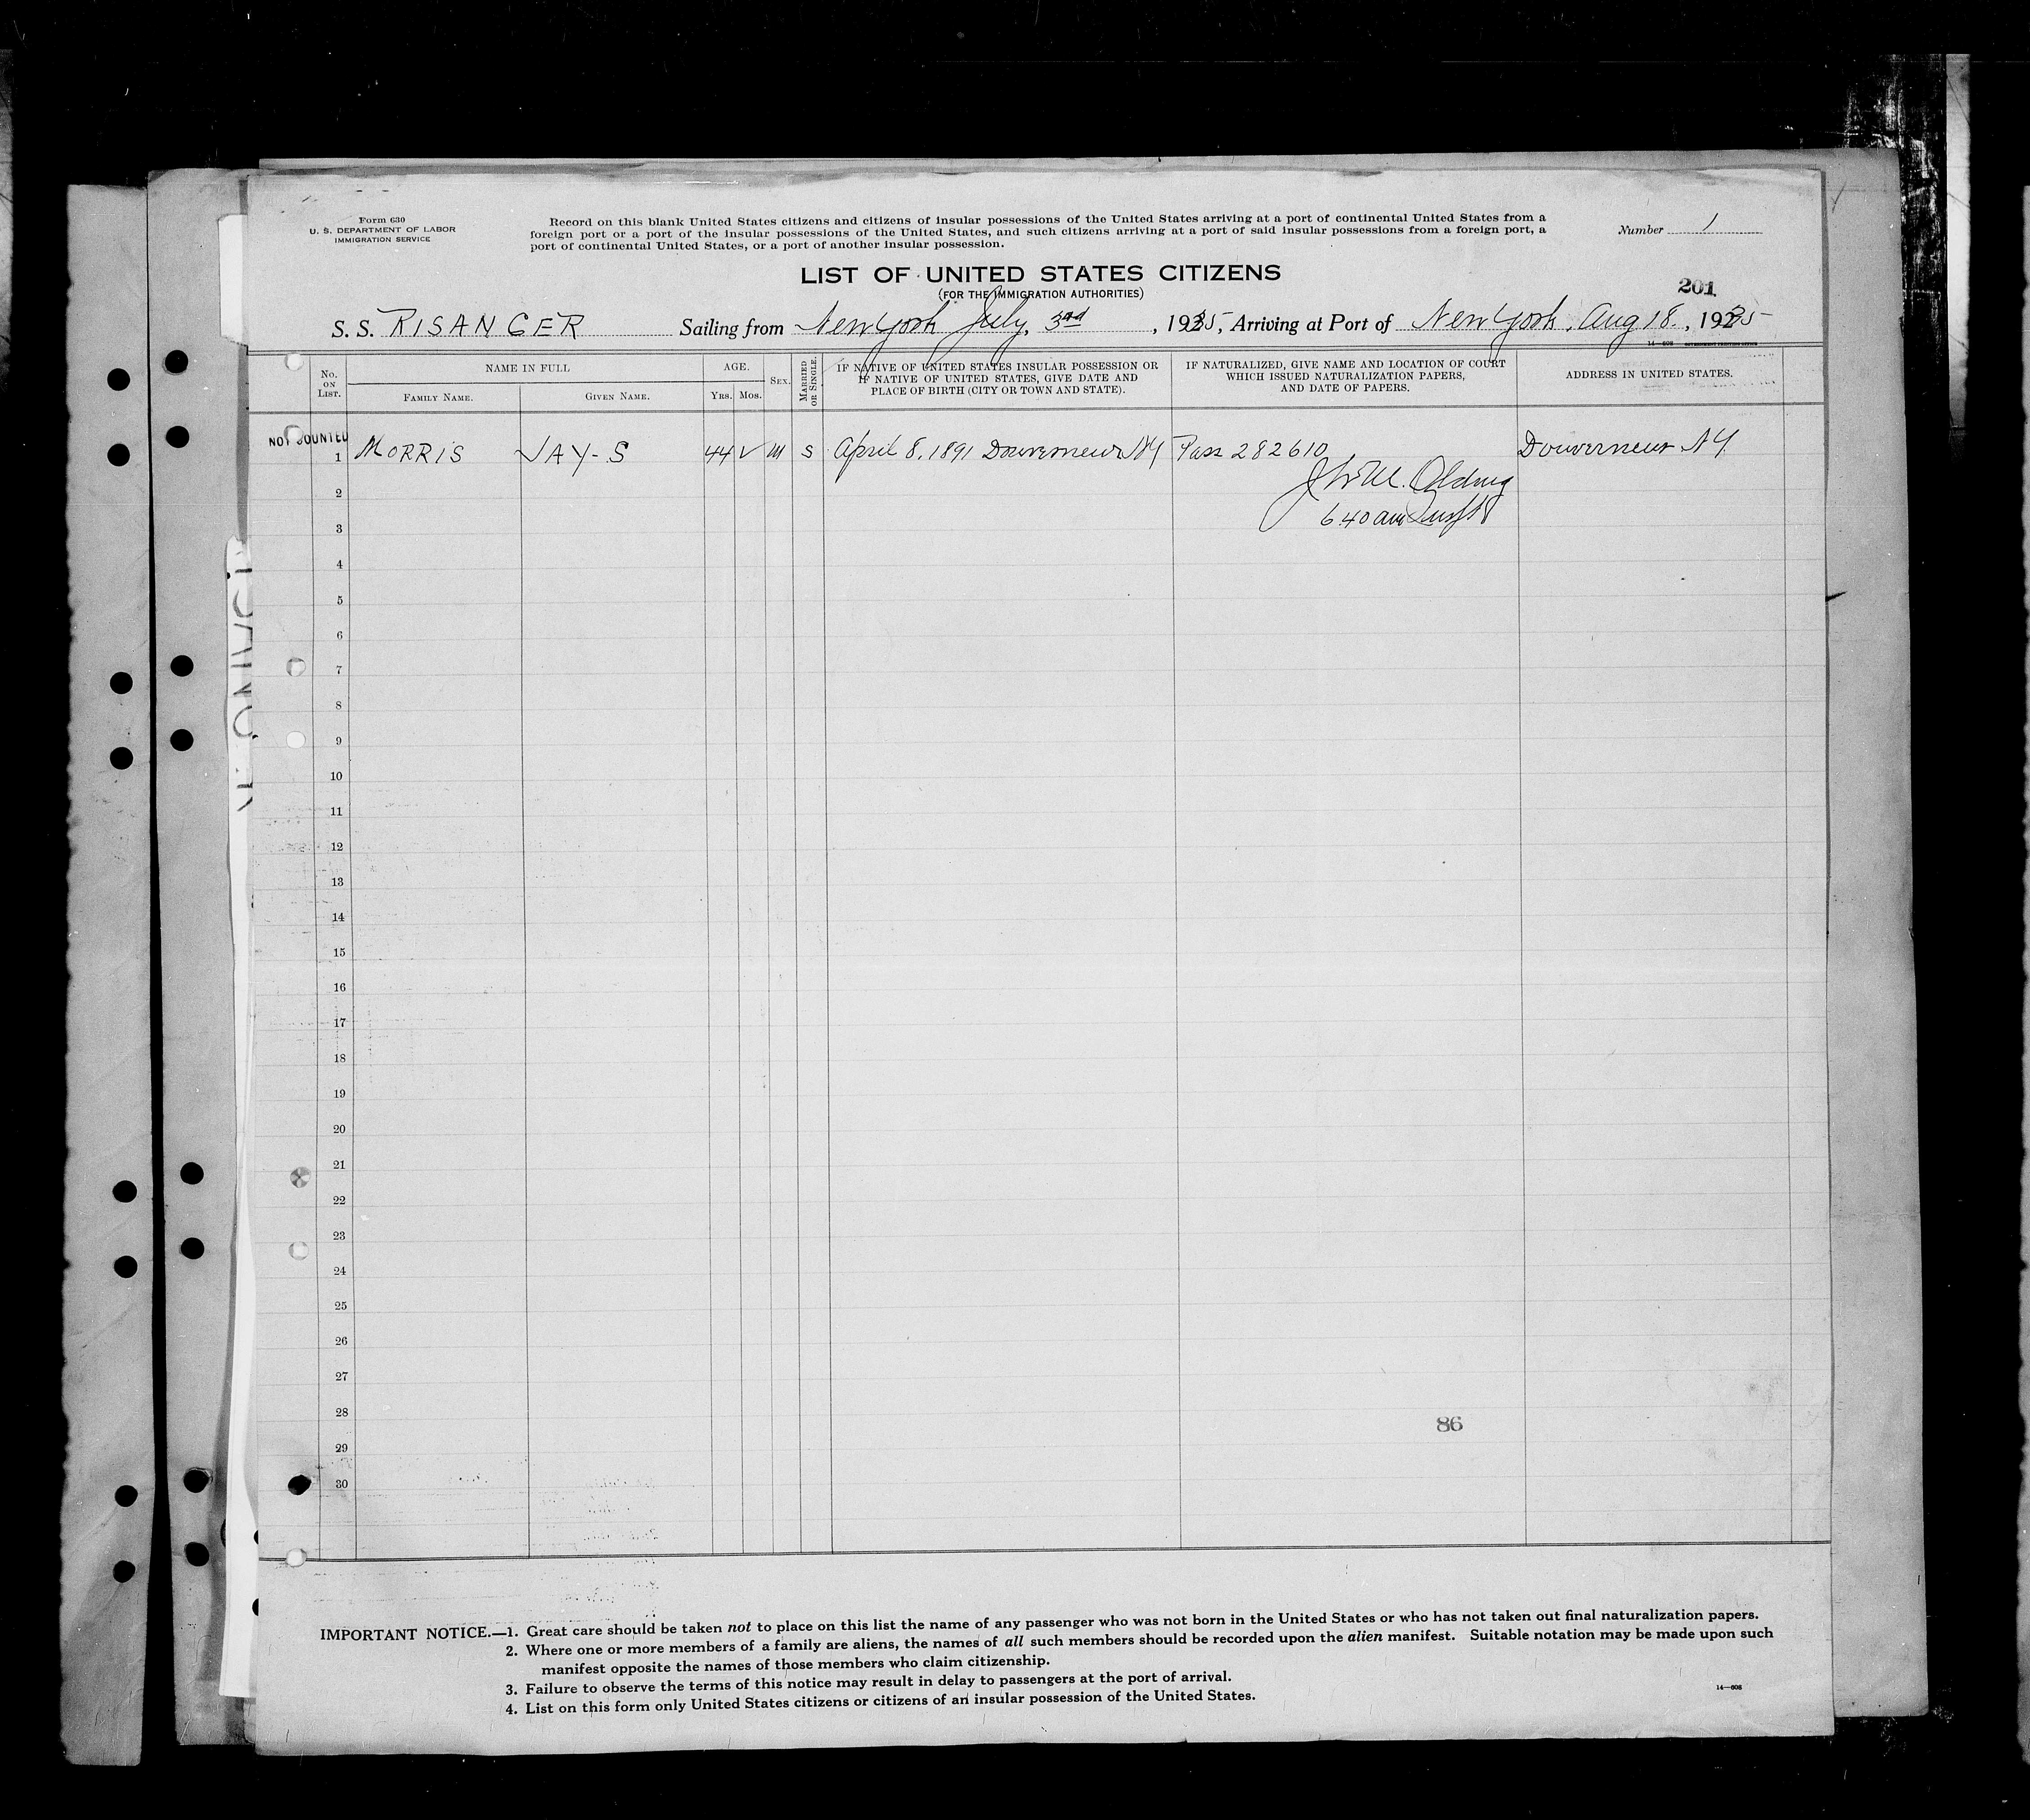 Form 630
U. S. DEPARTMENT OF LABOR
IMMIGRATION SERVICE
Record on this blank United States citizens and citizens of insular possessions of the United States arriving at a port of continental United States from a
foreign port or a port of the insular possessions of the United States, and such citizens arriving at a port of said insular possessions from a foreign port, a
port of continental United States, or a port of another insular possession.
Number 1
LIST OF UNITED STATES CITIZENS
(FOR THE IMMIGRATION AUTHORITIES)
201
S. S. RISANGER Sailing from New York July, 3rd, 1935, Arriving at Port of New York, Aug 18., 1935
14—608
No. ON LIST.
NAME IN FULL
FAMILY NAME.
GIVEN NAME.
AGE.
YRS. MOS.
SEX.
MARRIED OR SINGLE.
IF NATIVE OF UNITED STATES INSULAR POSSESSION OR
IF NATIVE OF UNITED STATES, GIVE DATE AND
PLACE OF BIRTH (CITY OR TOWN AND STATE).
IF NATURALIZED, GIVE NAME AND LOCATION OF COURT
WHICH ISSUED NATURALIZATION PAPERS,
AND DATE OF PAPERS.
ADDRESS IN UNITED STATES.
NOT COUNTED
1 MORRIS JAY-S 44 ✓ M S April 8, 1891 Douverneur NY Pass 282610 Douverneur NY
2
3 6.40 am
4
5
6
7
8
9
10
11
12
13
14
15
16
17
18
19
20
21
22
23
24
25
26
27
28
86
29
30
IMPORTANT NOTICE.—1. Great care should be taken not to place on this list the name of any passenger who was not born in the United States or who has not taken out final naturalization papers.
2. Where one or more members of a family are aliens, the names of all such members should be recorded upon the alien manifest. Suitable notation may be made upon such
manifest opposite the names of those members who claim citizenship.
3. Failure to observe the terms of this notice may result in delay to passengers at the port of arrival.
4. List on this form only United States citizens or citizens of an insular possession of the United States.
14—608